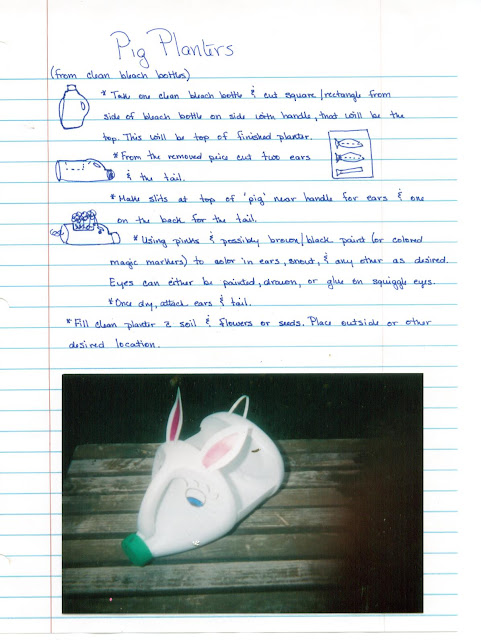 Pig Planters
(from clean bleach bottles)
* Take one clean bleach bottle & cut square/rectangle from
side of bleach bottle on side with handle, that will be the
top. This will be top of finished planter.
* From the removed piece cut two ears
& the tail.
* Make slits at top of 'pig' near handle for ears & one
on the back for the tail.
* Using pinks & possibly brown/black paint (or colored
magic markers) to color in ears, snout, & any other as desired.
Eyes can either be painted, drawn, or glue on squiggle eyes.
* Once dry, attach ears & tail.
* Fill clean planter c̄ soil & flowers or seeds. Place outside or other
desired location.